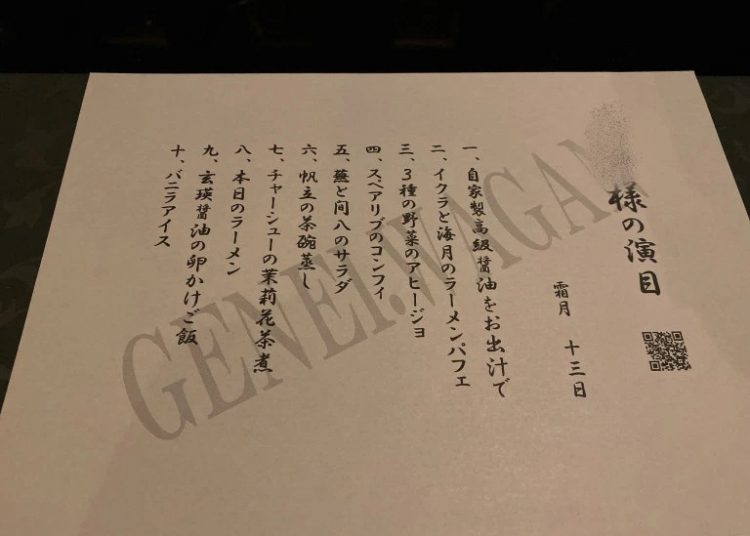 様の演目
霜月 十三日
一、自家製高級醤油をお出汁で
二、イクラと海月のラーメンパフェ
三、3種の野菜のアヒージョ
四、スペアリブのコンフィ
五、蕪と間八のサラダ
六、帆立の茶碗蒸し
七、チャーシューの茉莉花茶煮
八、本日のラーメン
九、玄瑛醤油の卵かけご飯
十、バニラアイス
GENEI.WAGAN